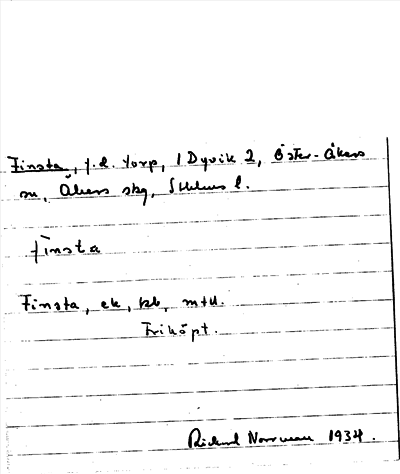 Finsta, f.d. torp, 1 Dyvik 2, Öster-Åkers
sn, Åkers skg, Sthlms l.
finsta
Finsta, ek, kb, mtl.
Friköpt.
Rickard Norrman 1934.